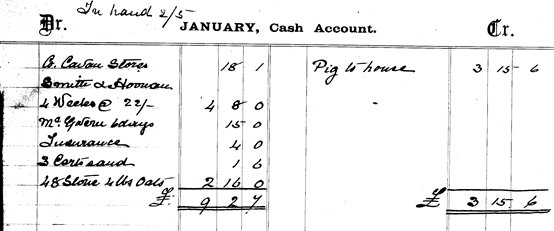 In hand 2/5
Dr. JANUARY, Cash Account. Cr.
Co. Cavan Stores 18 1
Pig to house 3 15 6
Smith &
4 Weeks @ 22/- 4 8 0
McGovern 6 days 15 0
Insurance 4 0
3 Carts sand 1 6
48 Stone 4 lbs Oats 2 16 0
£ 9 2 7
£ 3 15 6